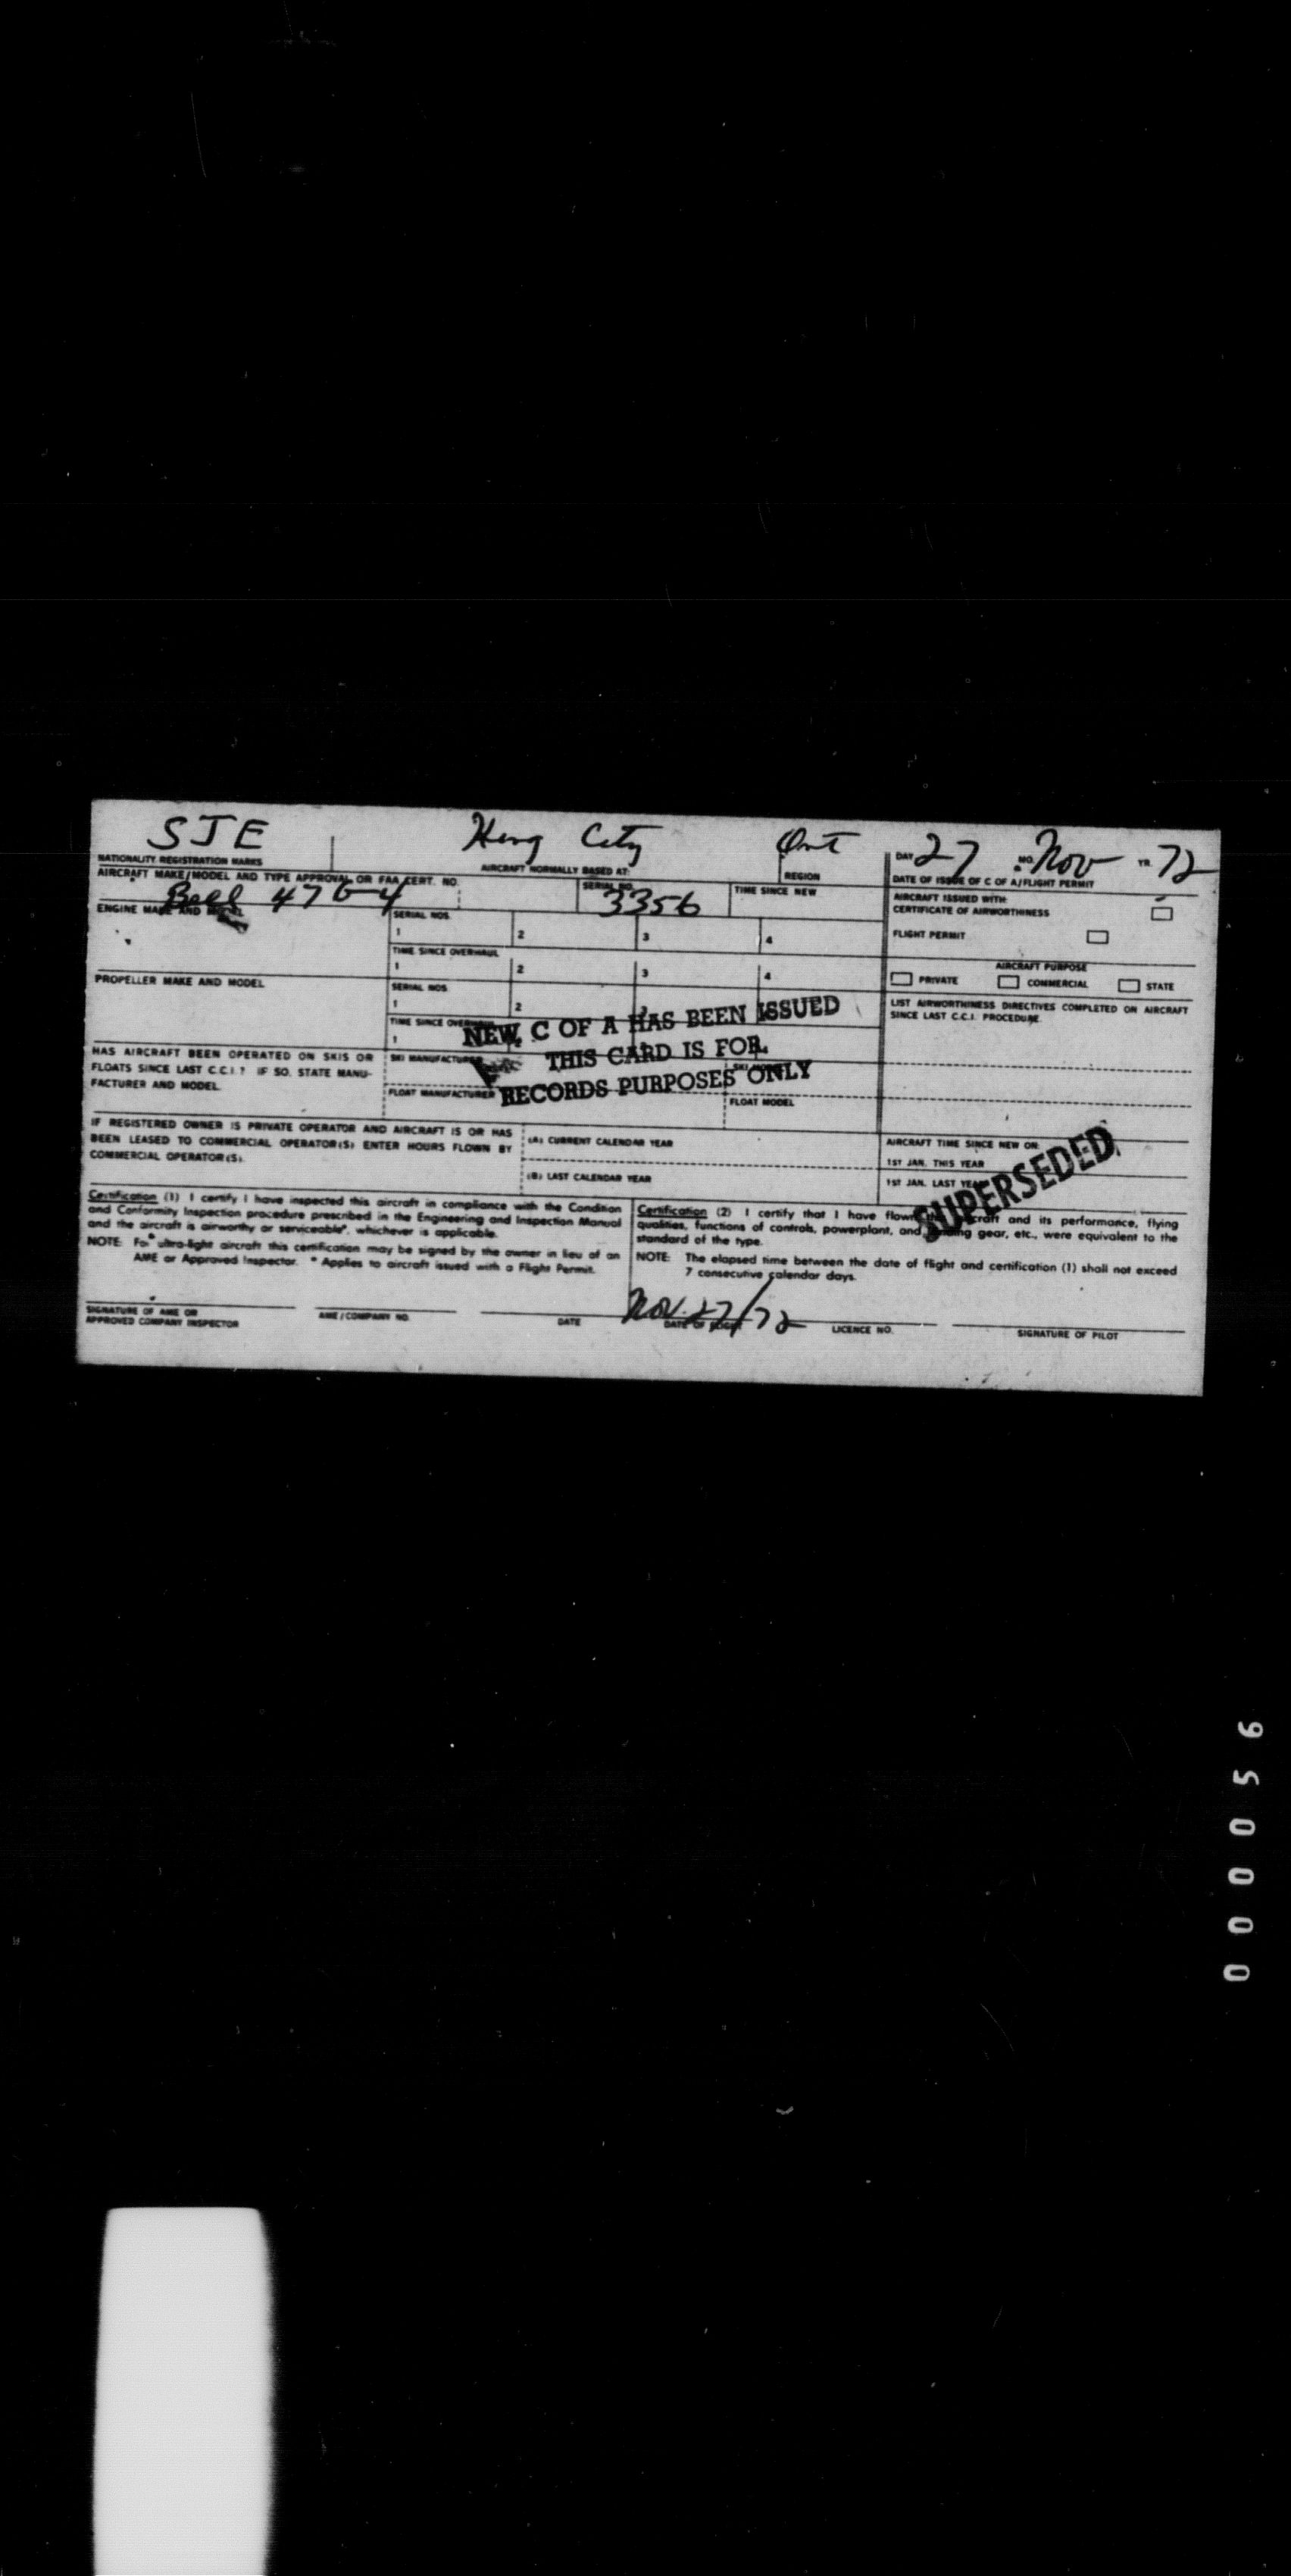 SJE King City Ont DAY 27 MO. Nov YR. 72
NATIONALITY REGISTRATION MARKS AIRCRAFT NORMALLY BASED AT: REGION DATE OF ISSUE OF C OF A/FLIGHT PERMIT
AIRCRAFT MAKE/MODEL AND TYPE APPROVAL OR FAA CERT. NO. SERIAL NO. TIME SINCE NEW
Bell 47G-4 3356
AIRCRAFT ISSUED WITH:
CERTIFICATE OF AIRWORTHINESS
FLIGHT PERMIT
ENGINE MAKE AND MODEL SERIAL NOS.
1 2 3 4
TIME SINCE OVERHAUL
1 2 3 4
AIRCRAFT PURPOSE
PRIVATE COMMERCIAL STATE
PROPELLER MAKE AND MODEL SERIAL NOS.
1 2
TIME SINCE OVERHAUL
1
LIST AIRWORTHINESS DIRECTIVES COMPLETED ON AIRCRAFT
SINCE LAST C.C.I. PROCEDURE.
NEW C OF A HAS BEEN ISSUED
THIS CARD IS FOR
RECORDS PURPOSES ONLY
HAS AIRCRAFT BEEN OPERATED ON SKIS OR
FLOATS SINCE LAST C.C.I.? IF SO, STATE MANU-
FACTURER AND MODEL.
SKI MANUFACTURER
FLOAT MANUFACTURER FLOAT MODEL
IF REGISTERED OWNER IS PRIVATE OPERATOR AND AIRCRAFT IS OR HAS
BEEN LEASED TO COMMERCIAL OPERATOR(S) ENTER HOURS FLOWN BY
COMMERCIAL OPERATOR(S).
(A) CURRENT CALENDAR YEAR
(B) LAST CALENDAR YEAR
AIRCRAFT TIME SINCE NEW ON:
1ST JAN. THIS YEAR
1ST JAN. LAST YEAR
SUPERSEDED
Certification (1) I certify I have inspected this aircraft in compliance with the Condition
and Conformity Inspection procedure prescribed in the Engineering and Inspection Manual
and the aircraft is airworthy or serviceable*, whichever is applicable.
NOTE: For ultra-light aircraft this certification may be signed by the owner in lieu of an
AME or Approved Inspector. * Applies to aircraft issued with a Flight Permit.
Certification (2) I certify that I have flown this aircraft and its performance, flying
qualities, functions of controls, powerplant, and landing gear, etc., were equivalent to the
standard of the type.
NOTE: The elapsed time between the date of flight and certification (1) shall not exceed
7 consecutive calendar days.
Nov. 27/72
SIGNATURE OF AME OR
APPROVED COMPANY INSPECTOR
AME/COMPANY NO. DATE DATE OF FLIGHT LICENCE NO. SIGNATURE OF PILOT
000056